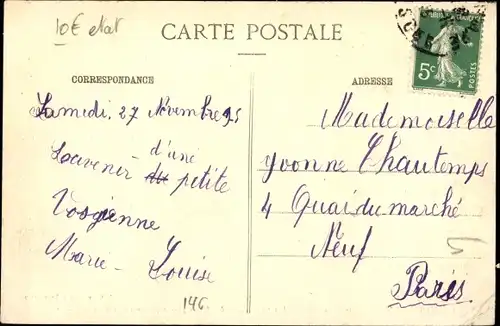 10€ état
CARTE POSTALE
CORRESPONDANCE
ADRESSE
5c
POSTES
Samedi 27 Novembre 15
Souvenir d'une
petite
Vosgienne
Marie-Louise
146
Mademoiselle
Yvonne Chautemps
4 Quai du marché
Neuf
5
Paris